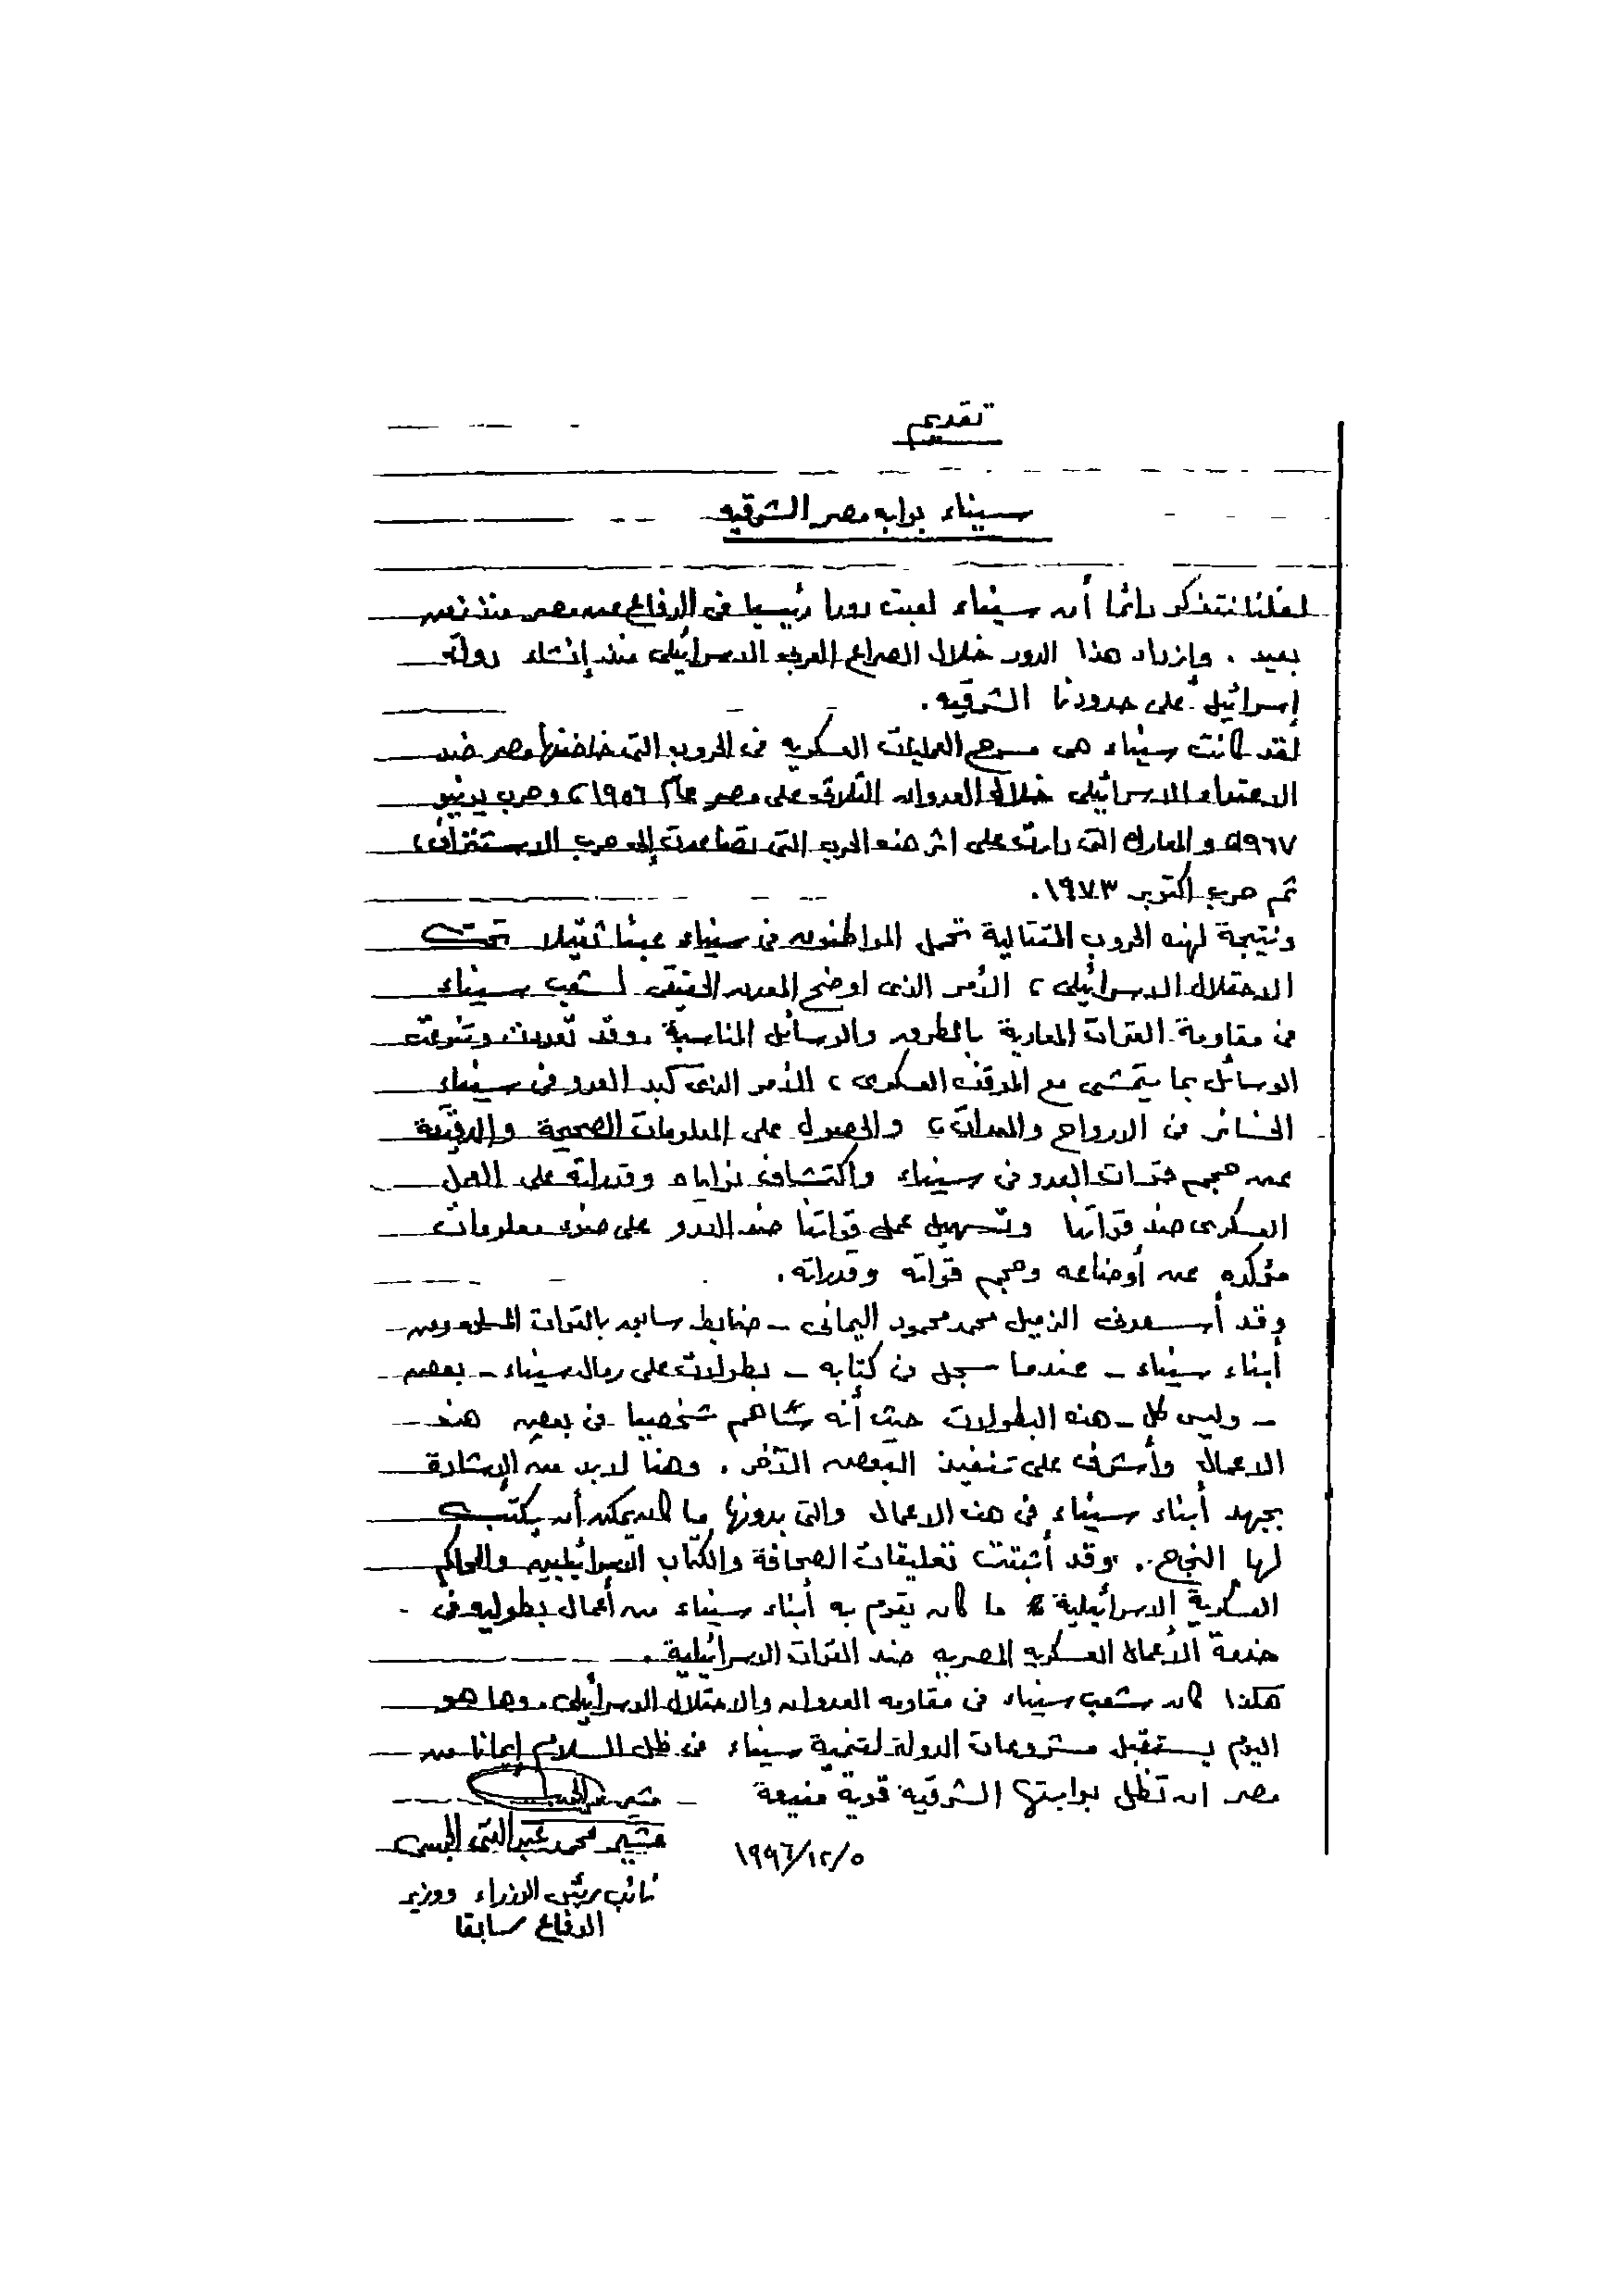 تقديم
سيناء بوابه مصر الشرقيه
لعلنا نتذكر دائما أن سيناء لعبت دورا رئيسيا فى الدفاع عن مصر منذ زمن
بعيد . وإزداد هذا الدور خلال الصراع العربى الاسرائيلى منذ إنشاء دولة
إسرائيل على حدودنا الشرقيه .
لقد كانت سيناء هى مسرح العمليات العسكريه فى الحروب التى خاضتها مصر ضد
الاعتداء الاسرائيلى خلال العدوان الثلاثى على مصر عام ١٩٥٦ ، وحرب يونيو
١٩٦٧ والمعارك التى دارت على اثر هذه الحرب التى تصاعدت إلى حرب الاستنزاف ،
ثم حرب اكتوبر ١٩٧٣ .
ونتيجة لهذه الحروب المتتالية تحمل المواطنون فى سيناء عبئا ثقيلا تحت
الاحتلال الاسرائيلى ، الأمر الذى اوضح المعدن الحقيقى لشعب سيناء
فى مقاومة القوات المعادية بالطرق والوسائل المناسبة . وقد تعددت وتنوعت
الوسائل بما يتمشى مع الموقف العسكرى ، الأمر الذى كبد العدو فى سيناء
الخسائر فى الارواح والمعدات ، والحصول على المعلومات الصحيحة والدقيقة
عن حجم قوات العدو فى سيناء واكتشاف نواياه وقدراته على العمل
العسكرى ضد قواتنا وتسهيل عمل قواتنا ضد العدو على ضوء معلومات
مؤكده عن أوضاعه وحجم قواته وقدراته .
وقد أسعدنى الزميل محمد محمود اليمانى - ضابط سابق بالقوات المسلحه ومن
أبناء سيناء - عندما سجل فى كتابه - بطولات على رمال سيناء - بعض
- وليس كل - هذه البطولات حيث أنه ساهم شخصيا فى بعض هذه
الاعمال وأشرف على تنفيذ البعض الآخر . وهنا لابد من الإشادة
بجهد أبناء سيناء فى هذه الاعمال والتى بدونها ما كان يمكن أن يكتب
لها النجاح . وقد أثبتت تعليقات الصحافة والكتاب الاسرائيليين والمحاكم
العسكرية الاسرائيلية ما كان يقوم به أبناء سيناء من أعمال بطوليه فى
خدمة الأعمال العسكريه المصريه ضد القوات الاسرائيلية .
هكذا كان شعب سيناء فى مقاومه العدوان والاحتلال الاسرائيلى . وها هو
اليوم يستقبل مشروعات الدولة لتنمية سيناء فى ظل السلام إيمانا من
مصر ان تظل بوابتها الشرقيه قوية منيعة
مشير محمد عبد الغنى الجمسى
١٩٩٦/١٢/٥
نائب رئيس الوزراء ووزير
الدفاع سابقا